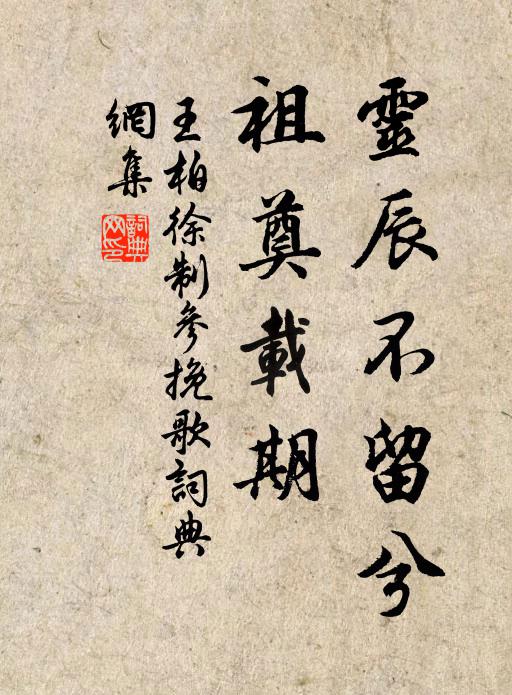 靈辰不留兮
祖奠載期
王柏徐制參挽歌詞典
網集
詞典
网印